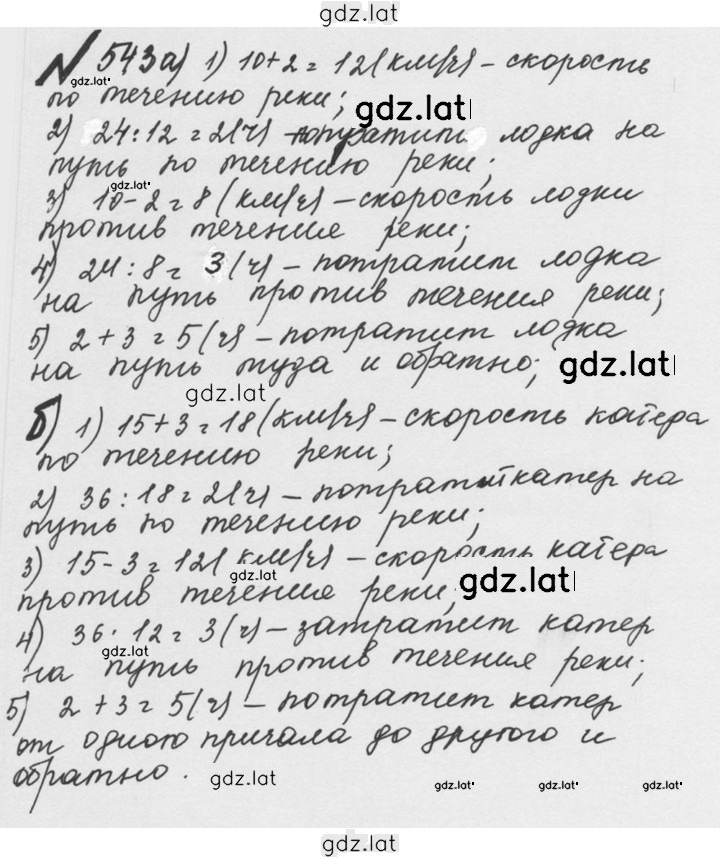 gdz.lat
№ 543 а) 1) 10+2=12 (км/ч) – скорость
gdz.lat
по течению реки;
gdz.lat
2) 24:12=2 (ч) – потратит лодка на
путь по течению реки;
gdz.lat
3) 10-2=8 (км/ч) – скорость лодки
против течения реки;
4) 24:8= 3 (ч) – потратит лодка
на путь против течения реки;
5) 2+3=5 (ч) – потратит лодка
на путь туда и обратно;
gdz.lat
gdz.lat
б) 1) 15+3=18 (км/ч) – скорость катера
по течению реки;
2) 36:18=2 (ч) – потратит катер на
путь по течению реки;
3) 15-3=12 (км/ч) – скорость катера
gdz.lat
против течения реки
gdz.lat
4) 36:12=3 (ч) – затратит катер
gdz.lat
на путь против течения реки;
5) 2+3=5 (ч) – потратит катер
от одного причала до другого и
обратно.
gdz.lat
gdz.lat
gdz.lat
gdz.lat
gdz.lat